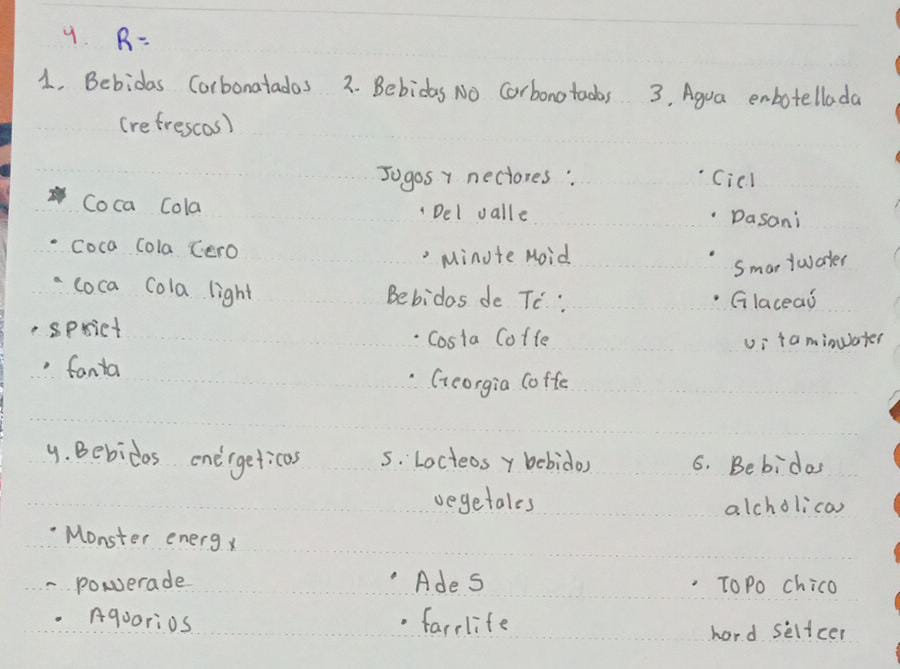 4. R=
1. Bebidas Carbonatados 2. Bebidas No Carbonatadas 3. Agua enbotellada
(refrescos)
Jugos y nectores :
• Ciel
* Coca Cola
• Del valle
• Dasani
• Coca Cola Cero
• Minute Maid
• Smartwater
• Coca Cola light
Bebidas de Té :
• Glaceaú
• spriet
• Costa Coffe
vitaminwater
• fanta
• Georgia Coffe
4. Bebidas enérgeticas
5. Lacteos y bebidas
6. Bebidas
vegetales
alchólicas
• Monster energy
- powerade
• Ades
• TOPO Chico
• Aquarios
• farrlife
hard seltcer